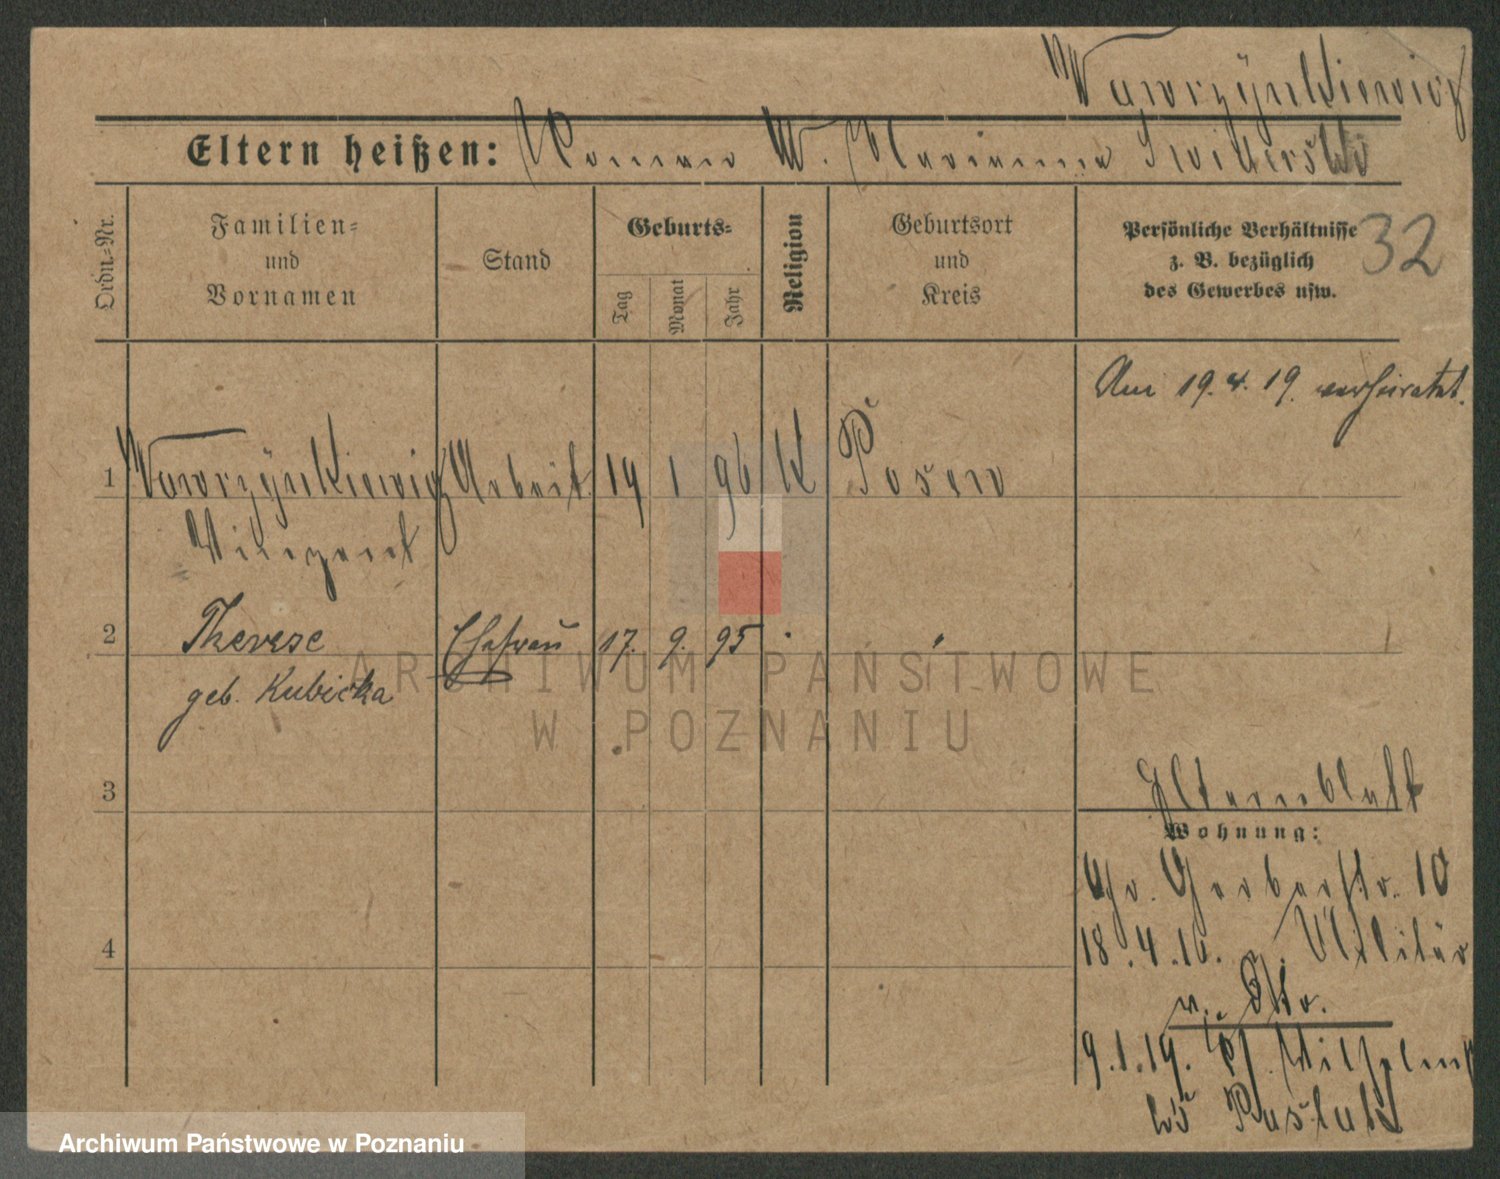 Wawrzÿnkiewicz
Eltern heißen: Roman W. Marianna Switerski
32
Ordn.-Nr.
Familien-
und
Vornamen
Stand
Geburts-
Tag
Monat
Jahr
Religion
Geburtsort
und
Kreis
Persönliche Verhältnisse
z. B. bezüglich
des Gewerbes usw.
Am 19. 4. 19. verheiratet.
1 Wawrzÿnkiewicz Arbeit. 19 1 96 K Posen
Vinzent
2 Therese Ehefrau 17. 9. 95 " "
geb. Kubicka
3
Elternblatt
Wohnung:
Gr. Gerberstr. 10
4
18.4.16. z. Militär
v. Str.
9.1.19. Wilhelm
bei Paslak
ARCHIWUM PAŃSTWOWE
W POZNANIU
Archiwum Państwowe w Poznaniu